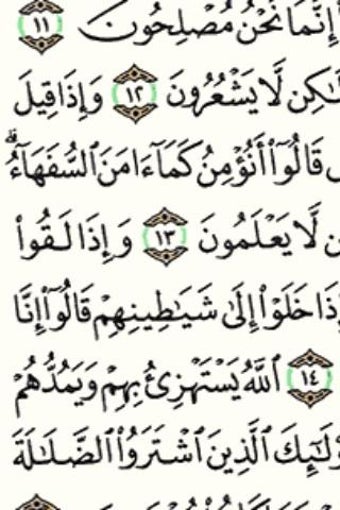 إِنَّمَا نَحْنُ مُصْلِحُونَ ١١
لَّا يَشْعُرُونَ ١٢ وَإِذَا قِيلَ
قَالُوٓا۟ أَنُؤْمِنُ كَمَآ ءَامَنَ ٱلسُّفَهَآءُ ۗ
لَّا يَعْلَمُونَ ١٣ وَإِذَا لَقُوا۟
خَلَوْا۟ إِلَىٰ شَيَـٰطِينِهِمْ قَالُوٓا۟ إِنَّا
١٤ ٱللَّهُ يَسْتَهْزِئُ بِهِمْ وَيَمُدُّهُمْ
ٱلَّذِينَ ٱشْتَرَوُا۟ ٱلضَّلَـٰلَةَ